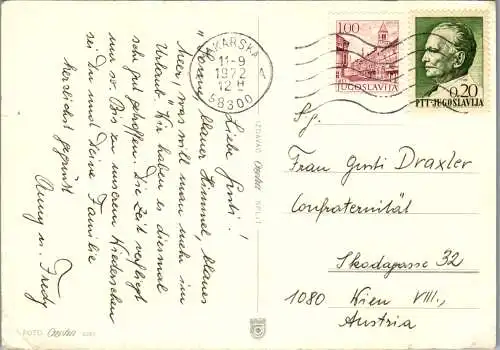 Liebe Gusti!
"Sonne, blauer Himmel, blaues
Meer, was will man mehr im
Urlaub." Wir haben es diesmal
sehr gut getroffen. Die Zeit verfliegt
nur so. Bis zu unserem Wiedersehen
sei Du und Deine Familie
herzlichst gegrüsst
Anny u. Fredy
MAKARSKA
11-9
1972
12 H
A
58300
1.00
JUGOSLAVIJA
0.20
PTT-JUGOSLAVIJA
Sg.
Frau Gusti Draxler
Confraternität
Skodagasse 32
1080 Wien VIII.,
Austria
IZDAVAČ SPLIT
FOTO